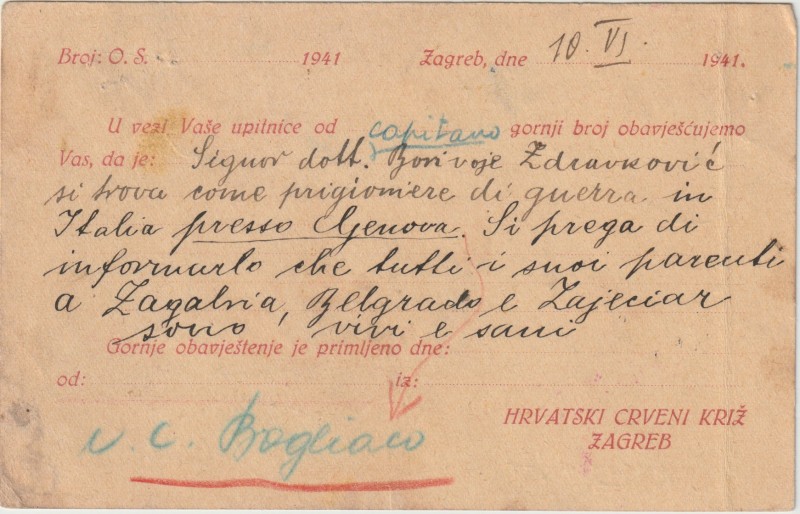 Broj: O. S. 1941 Zagreb, dne 10. VI. 1941.
U vezi Vaše upitnice od capitano gornji broj obavješćujemo
Vas, da je: Signor dott. Borivoje Zdravković
si trova come prigioniere di guerra in
Italia presso Genova. Si prega di
informarlo che tutti i suoi parenti
a Belgrado e Zajeciar
sono vivi e sani
Gornje obavještenje je primljeno dne:
od: iz:
HRVATSKI CRVENI KRIŽ
ZAGREB